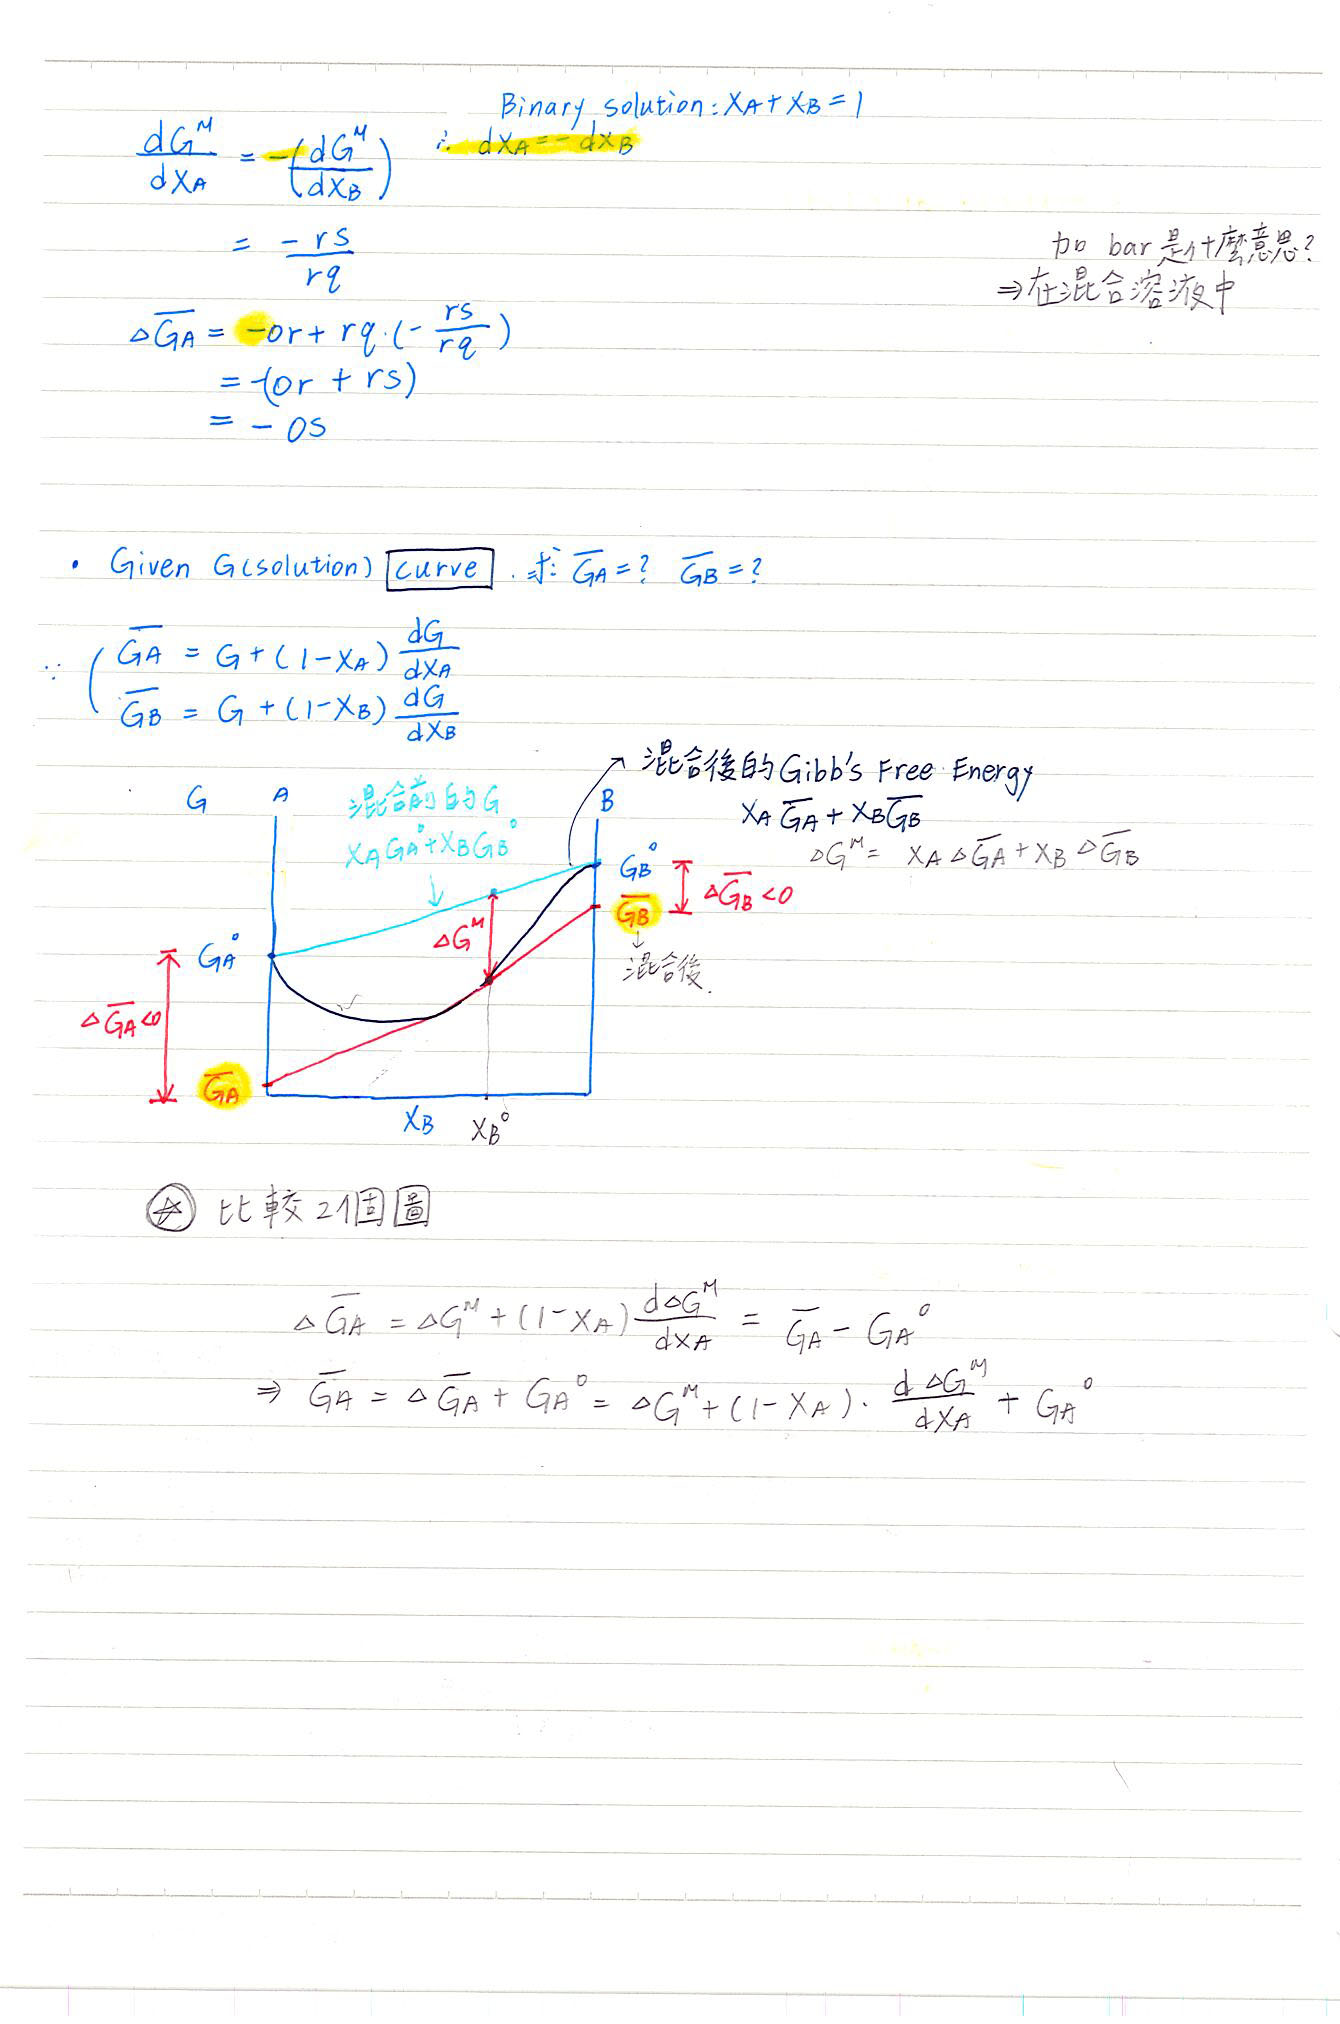 Binary solution: XA + XB = 1
∴ dXA = - dXB
dG^M/dXA = -(dG^M/dXB)
= -rs/rq
加 bar 是什麼意思?
⇒ 在混合溶液中
△G̅A = -or + rq·(- rs/rq)
= -(or + rs)
= - os
• Given G(solution) curve. 求 G̅A = ? G̅B = ?
∵ G̅A = G + (1-XA) dG/dXA
G̅B = G + (1-XB) dG/dXB
混合後的 Gibb's Free Energy
XA G̅A + XB G̅B
△G^M = XA △G̅A + XB △G̅B
G A B
混合前的 G
XA GA° + XB GB°
GB°
△G̅B < 0
G̅B
混合後.
△G^M
GA°
△G̅A < 0
G̅A
XB XB°
☆ 比較 2個圖
△G̅A = △G^M + (1-XA) d△G^M/dXA = G̅A - GA°
⇒ G̅A = △G̅A + GA° = △G^M + (1-XA)· d△G^M/dXA + GA°